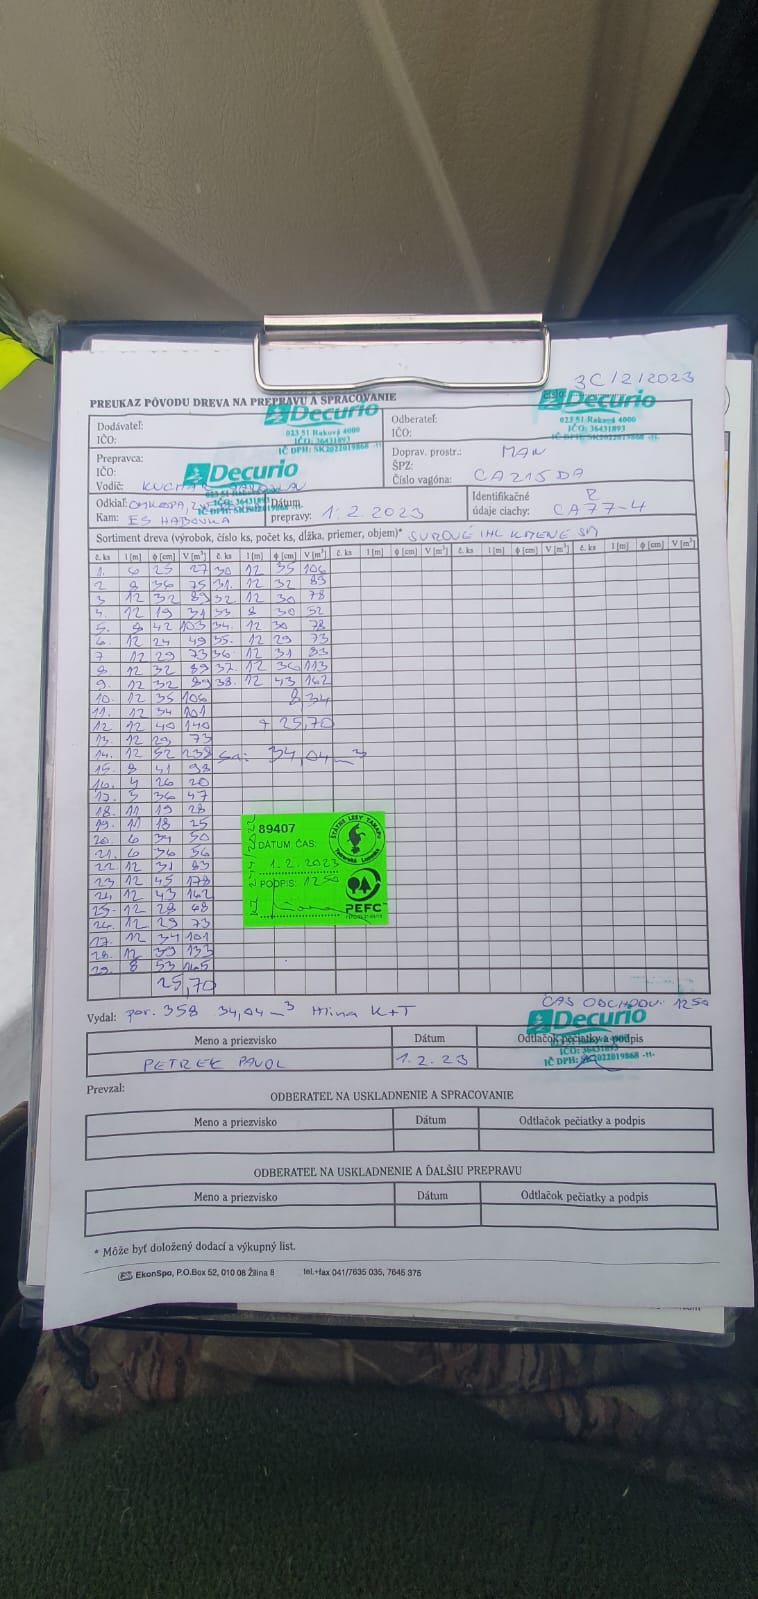 3C/2/2023
PREUKAZ PÔVODU DREVA NA PREPRAVU A SPRACOVANIE
Decurio
023 51 Raková 4000
IČO: 36431893
IČ DPH: SK2022019868 -11-
číslo
Decurio
023 51 Raková 4000
IČO: 36431893
IČ DPH: SK2022019868 -11-
Dodávateľ:
IČO:
Odberateľ:
IČO:
Prepravca:
IČO:
Vodič: KUCHAR
Decurio
023 51 Raková 4000
IČO: 36431893
IČ DPH: SK2022019868 -11-
Doprav. prostr.: MAN
ŠPZ:
Číslo vagóna: CA215DA
Odkiaľ:
Kam: ES HABOVKA
Dátum
prepravy: 1.2.2023
Identifikačné
údaje ciachy: CA77-4
Sortiment dreva (výrobok, číslo ks, počet ks, dĺžka, priemer, objem)* SUROVÉ IHL KMENE
č. ks l [m] ϕ [cm] V [m³] č. ks l [m] ϕ [cm] V [m³] č. ks l [m] ϕ [cm] V [m³] č. ks l [m] ϕ [cm] V [m³] č. ks l [m] ϕ [cm] V [m³]
1. 6 25 27 30 12 35 106
2 8 36 75 31. 12 32 89
3 12 32 89 32. 12 30 78
4. 12 19 31 33 8 30 52
5. 8 42 103 34. 12 30 78
6. 12 24 49 35. 12 29 73
7 12 29 73 36. 12 31 83
8 12 32 89 37. 12 36 113
9. 12 32 89 38. 12 43 162
10. 12 35 106 8,34
11. 12 34 101
12 12 40 140 + 25,70
13. 12 29 73
14. 12 52 239 Sa: 34,04 m³
15. 8 41 98
16. 4 26 20
17. 5 36 47
18. 11 19 28
19. 11 18 25
20. 6 34 50
21. 6 36 56
22 12 31 83
23 12 45 178
24 12 43 162
25. 12 28 68
26. 12 29 73
27. 12 34 101
28. 12 39 133
29. 8 53 165
25,70
89407
DÁTUM ČAS:
1.2.2023
PODPIS: 1250
ŠTÁTNE LESY TANAPu
Tatranská Lomnica
PEFC
Vydal: por. 358 34,04 m³ Hlina K+T
ČAS ODCHODU: 1250
Decurio
IČO: 36431893
IČ DPH: SK2022019868 -11-
Meno a priezvisko Dátum Odtlačok pečiatky a podpis
PETREK PAVOL 1.2.23
Prevzal:
ODBERATEĽ NA USKLADNENIE A SPRACOVANIE
Meno a priezvisko Dátum Odtlačok pečiatky a podpis
ODBERATEĽ NA USKLADNENIE A ĎALŠIU PREPRAVU
Meno a priezvisko Dátum Odtlačok pečiatky a podpis
* Môže byť doložený dodací a výkupný list.
EkonSpo, P.O.Box 52, 010 08 Žilina 8 tel.+fax 041/7635 035, 7645 375